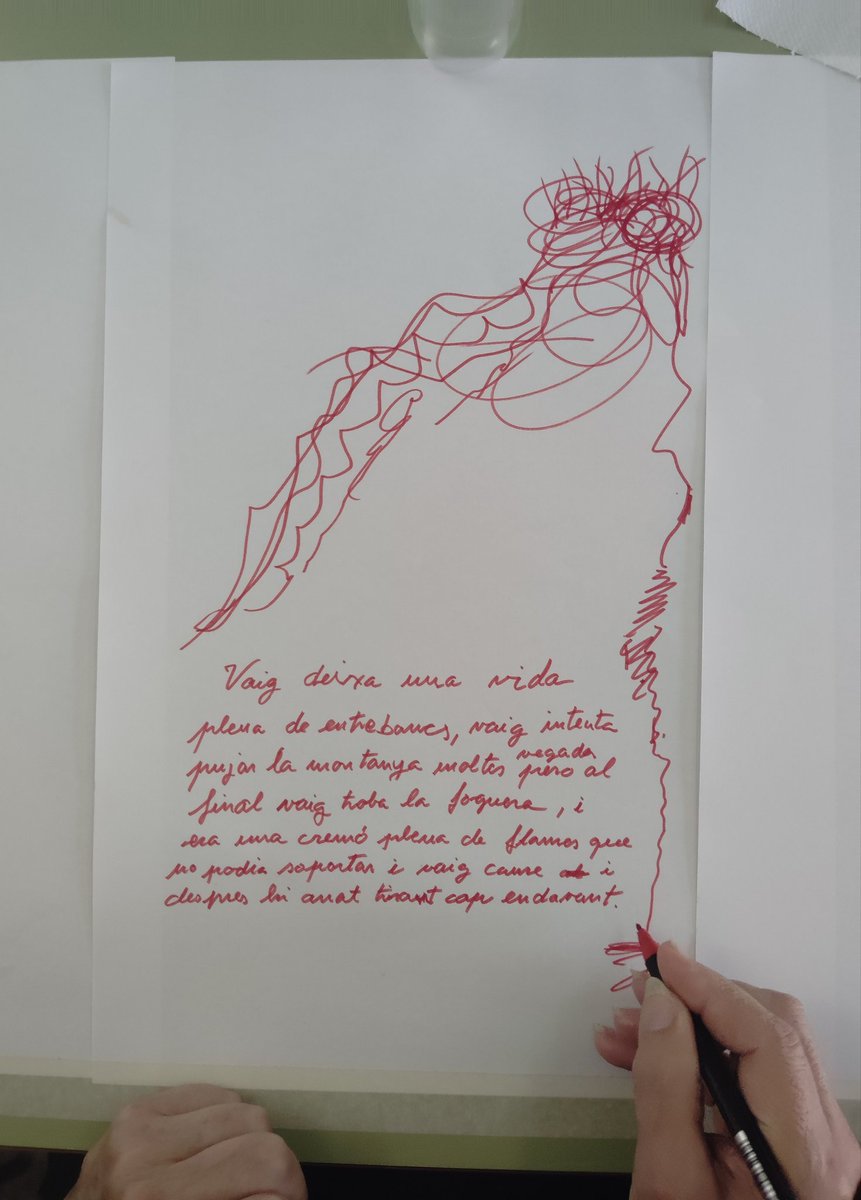 Vaig deixa una vida
plena de entrebancs, vaig intenta
pujar la montanya moltes vegada pero al
final vaig troba la foguera, i
era una cremó plena de flames que
no podia soportar i vaig caure i
despres hi anat tirant cap endavant.